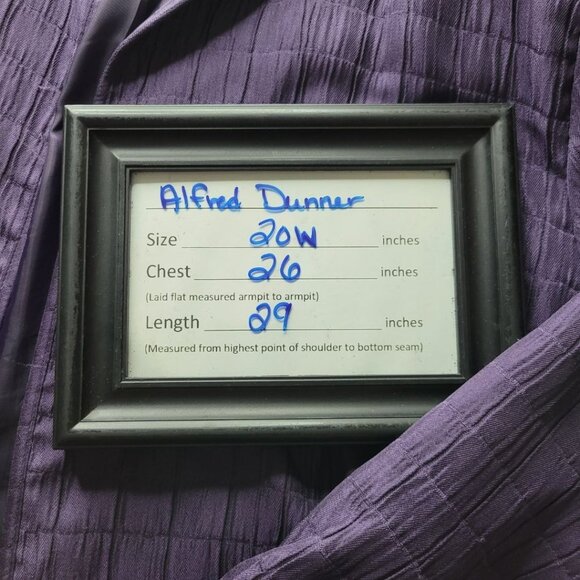 Alfred Dunner
Size 20W inches
Chest 26 inches
(Laid flat measured armpit to armpit)
Length 29 inches
(Measured from highest point of shoulder to bottom seam)